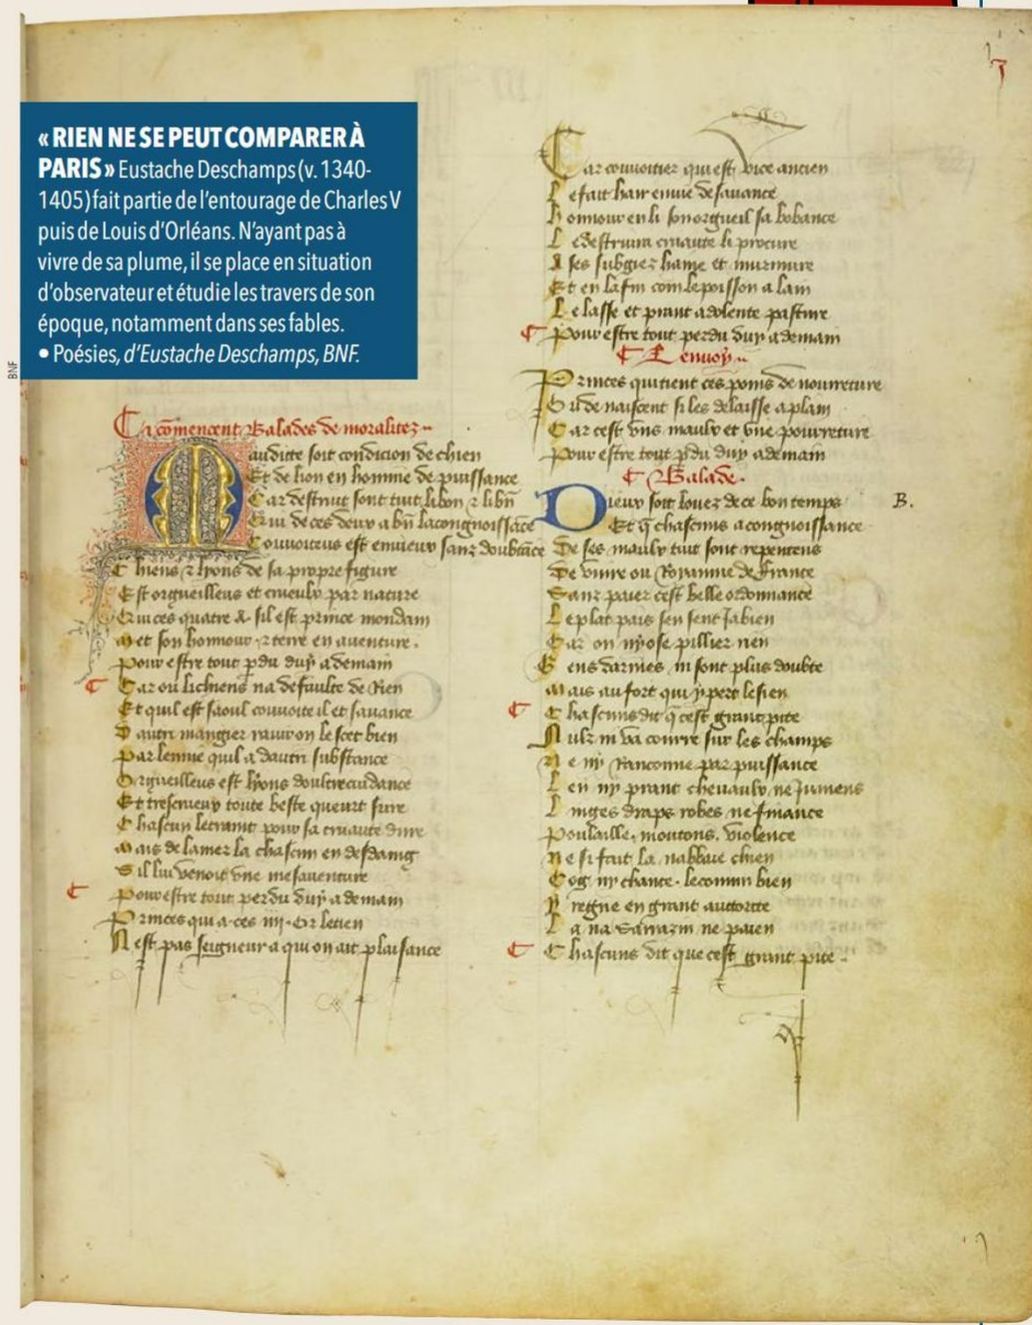 « RIEN NE SE PEUT COMPARER À
PARIS » Eustache Deschamps (v. 1340-
1405) fait partie de l'entourage de Charles V
puis de Louis d'Orléans. N'ayant pas à
vivre de sa plume, il se place en situation
d'observateur et étudie les travers de son
époque, notamment dans ses fables.
• Poésies, d'Eustache Deschamps, BNF.
BNF
Cy cōmencent Balades de moralitez
Maudicte soit condicion de chien
Et de lion en homme de puissance
Car destruit sont tuit li bon
Qui de ces deux a bn̄ la congnoissāce
Convoiteus est envieux sanz doubtāce
Chiens lyons de sa propre figure
Est orgueilleus et crueulx par nature
Qui ces quatre a sil est prince mondain
Met son honnour terre en aventure
Pour estre tout p̄du duy a demain
Car ou li chiens na defaulte de Rien
Et quil est saoul convoite il et savance
Dautri mangier ravir on le scet bien
Par lenvie quil a dautri substance
Orgueilleus est lyons doultrecuidance
Et trescrueux toute beste queurt sure
Chascun le craint pour sa cruaute dure
Mais de lamer la chascun en desdaing
Sil lui venoit une mesaventure
Pour estre tout perdu duy a demain
Princes qui a ces
Nest pas seigneur a qui on ait plaisance
Car convoitier qui est vice ancien
Le fait hair envie desavance
Honnour en li son orgueil sa bobance
Le destruira cruaute li procure
A ses subgiez hayne et murmure
Et en la fin com le poisson a lain
Le lasse et prant a dolente pasture
Pour estre tout perdu duy a demain
Lenvoy
Princes qui tient ces poins de nourreture
si les delaisse a plain
Car cest uns maulx et une pourreture
Pour estre tout p̄du duy a demain
Balade
Dieux soit louez de ce bon temps
B.
Et q̄ chascuns a congnoissance
De ses maulx tuit sont repentens
De vivre ou Royaume de France
Sanz paier cest belle ordonnance
Le plat pais sen sent ja bien
Car on ny ose pillier rien
Gens darmes ni sont plus doubte
Mais au fort qui y pert le sien
Chascuns dit q̄ cest grant pite
Nulz ni va courre sur les champs
Ne ny Ranconne par puissance
Len ny prant chevaulx ne jumens
Linges draps robes ne finance
Poulaille, moutons, violence
Ne si fait la nabbaie chien
Coq ny chante le commun bien
Y regne en grant auctorite
La na Sarrazin ne paien
Chascuns dit que cest grant pite